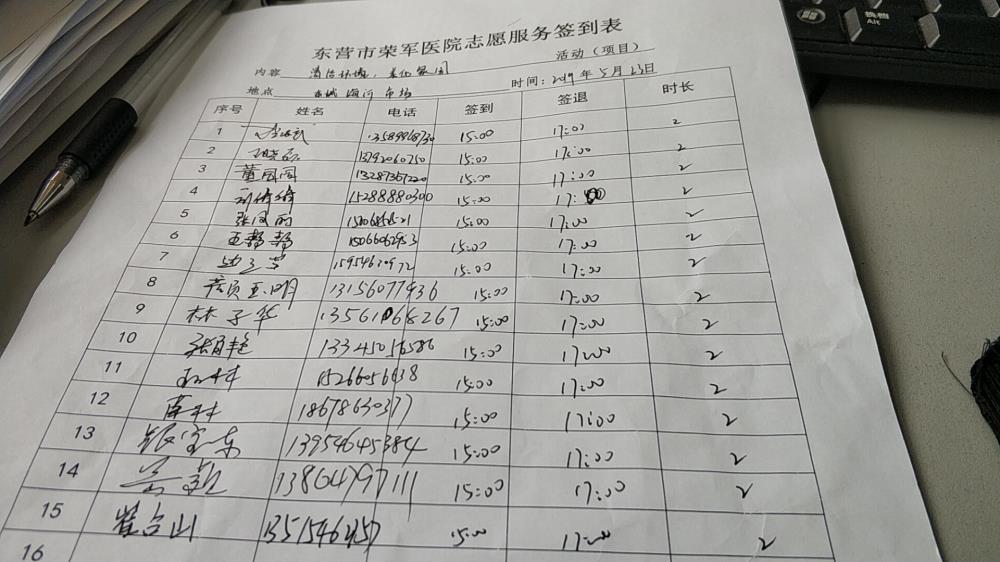 东营市荣军医院志愿服务签到表
内容 清洁环境,美化家园 活动(项目)
地点 东城 海河 市场 时间:2019年5月23日
序号 姓名 电话 签到 签退 时长
1 13589968730 15:00 17:00 2
2 13792060750 15:00 17:00 2
3 董圆圆 13287367220 15:00 17:00 2
4 刘倩倩 15288880300 15:00 17:00 2
5 张凤丽 15:00 17:00 2
6 王静静 15066062953 15:00 17:00 2
7 15954630972 15:00 17:00 2
8 13156077936 15:00 17:00 2
9 林子华 13561068267 15:00 17:00 2
10 13345056586 15:00 17:00 2
11 15266056938 15:00 17:00 2
12 18678630377 15:00 17:00 2
13 13954645384 15:00 17:00 2
14 13864797111 15:00 17:00 2
15 崔台山 15:00 17:00 2
16
Alt
换档